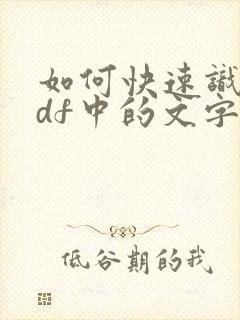 如何快速识
df中的文字
低谷期的我